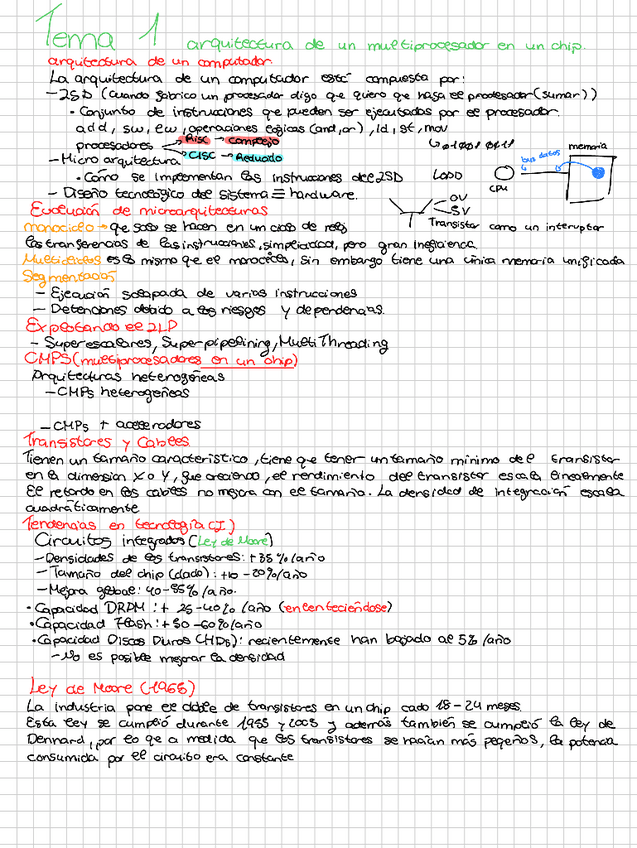 Tema 1 arquitectura de un multiprocesador en un chip.
arquitectura de un computador
La arquitectura de un computador está compuesta por:
- ISA (cuando fabrico un procesador digo que quiero que haga el procesador (sumar))
• Conjunto de instrucciones que pueden ser ejecutadas por el procesador.
add, sw, lw, operaciones lógicas (and, or), ld, st, mov
procesadores → Risc → complejo
→ CISC → Reducido
- Micro arquitectura
• Cómo se implementan las instrucciones del ISA
LOAD
CPU
bus datos
memoria
- Diseño tecnológico del sistema ≡ hardware.
0V
5V
Transistor como un interruptor
Evolución de microarquitecturas
monociclo → que solo se hacen en un ciclo de reloj
las transferencias de las instrucciones, simplicidad, pero gran ineficiencia.
Multiciclos es lo mismo que el monociclo, sin embargo tiene una única memoria unificada
Segmentación
- Ejecución solapada de varias instrucciones
- Detenciones debido a los riesgos y dependencias.
Explotando el ILP
- Superescalares, Superpipelining, MultiThreading
CMPS (multiprocesadores en un chip)
Arquitecturas heterogéneas
- CMPs heterogéneas
- CMPs + aceleradores
Transistores y Cables.
Tienen un tamaño característico, tiene que tener un tamaño mínimo del transistor
en la dimension x o y, que creciendo, el rendimiento del transistor escala linealmente
El retardo en los cables no mejora con el tamaño. La densidad de integración escala
cuadráticamente
Tendencias en tecnología CI)
Circuitos integrados (Ley de Moore)
- Densidades de los transistores: +35%/año
- Tamaño del chip (dado): +10-20%/año
- Mejora global: 40-55%/año.
• Capacidad DRAM: + 25-40% /año (enlenteciéndose)
• Capacidad Flash: +50-60%/año
• Capacidad Discos Duros (HDs): recientemente han bajado al 5% /año
- No es posible mejorar la densidad
Ley de Moore (1965)
La industria pone el doble de transistores en un chip cada 18-24 meses.
Esta ley se cumplió durante 1985 y 2005 y además también se cumplió la ley de
Dennard, por lo que a medida que los transistores se hacían más pequeños, la potencia
consumida por el circuito era constante